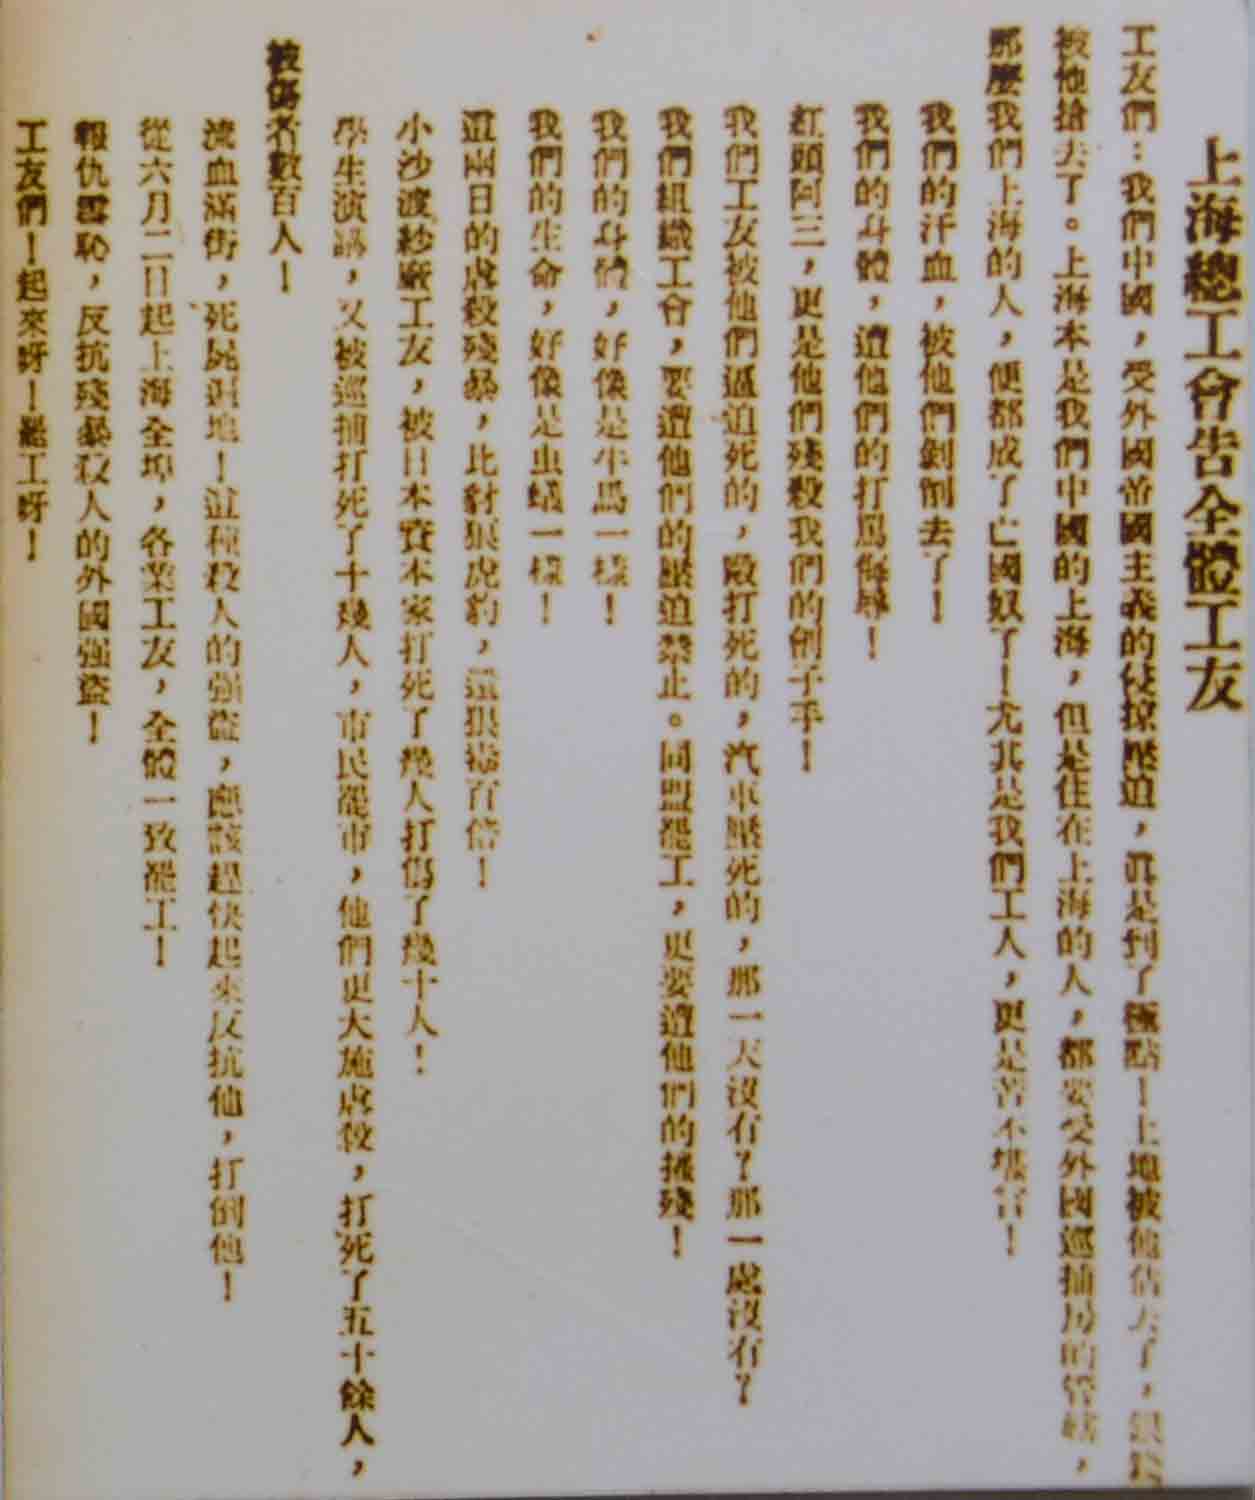 上海總工會告全體工友
工友們：我們中國，受外國帝國主義的侵掠壓迫，眞是到了極點！土地被他佔去了，銀錢
被他搶去了。上海本是我們中國的上海，但是住在上海的人，都要受外國巡捕房的管轄，
那麼我們上海的人，便都成了亡國奴了！尤其是我們工人，更是苦不堪言！
我們的汗血，被他們剝削去了！
我們的身體，遭他們的打罵侮辱！
紅頭阿三，更是他們殘殺我們的劊子手！
我們工友被他們逼迫死的，毆打死的，汽車壓死的，那一天沒有？那一處沒有？
我們組織工會，要遭他們的壓迫禁止。同盟罷工，更要遭他們的摧殘！
我們的身體，好像是牛馬一樣！
我們的生命，好像是虫蟻一樣！
這兩日的虐殺殘暴，比豺狼虎豹，還狠毒百倍！
小沙渡紗廠工友，被日本資本家打死了幾人打傷了幾十人！
學生演講，又被巡捕打死了十幾人，市民罷市，他們更大施虐殺，打死了五十餘人，
被傷者數百人！
流血滿街，死屍遍地！這種殺人的強盜，應該趕快起來反抗他，打倒他！
從六月二日起上海全埠，各業工友，全體一致罷工！
報仇雪恥，反抗殘暴殺人的外國强盜！
工友們！起來呀！罷工呀！